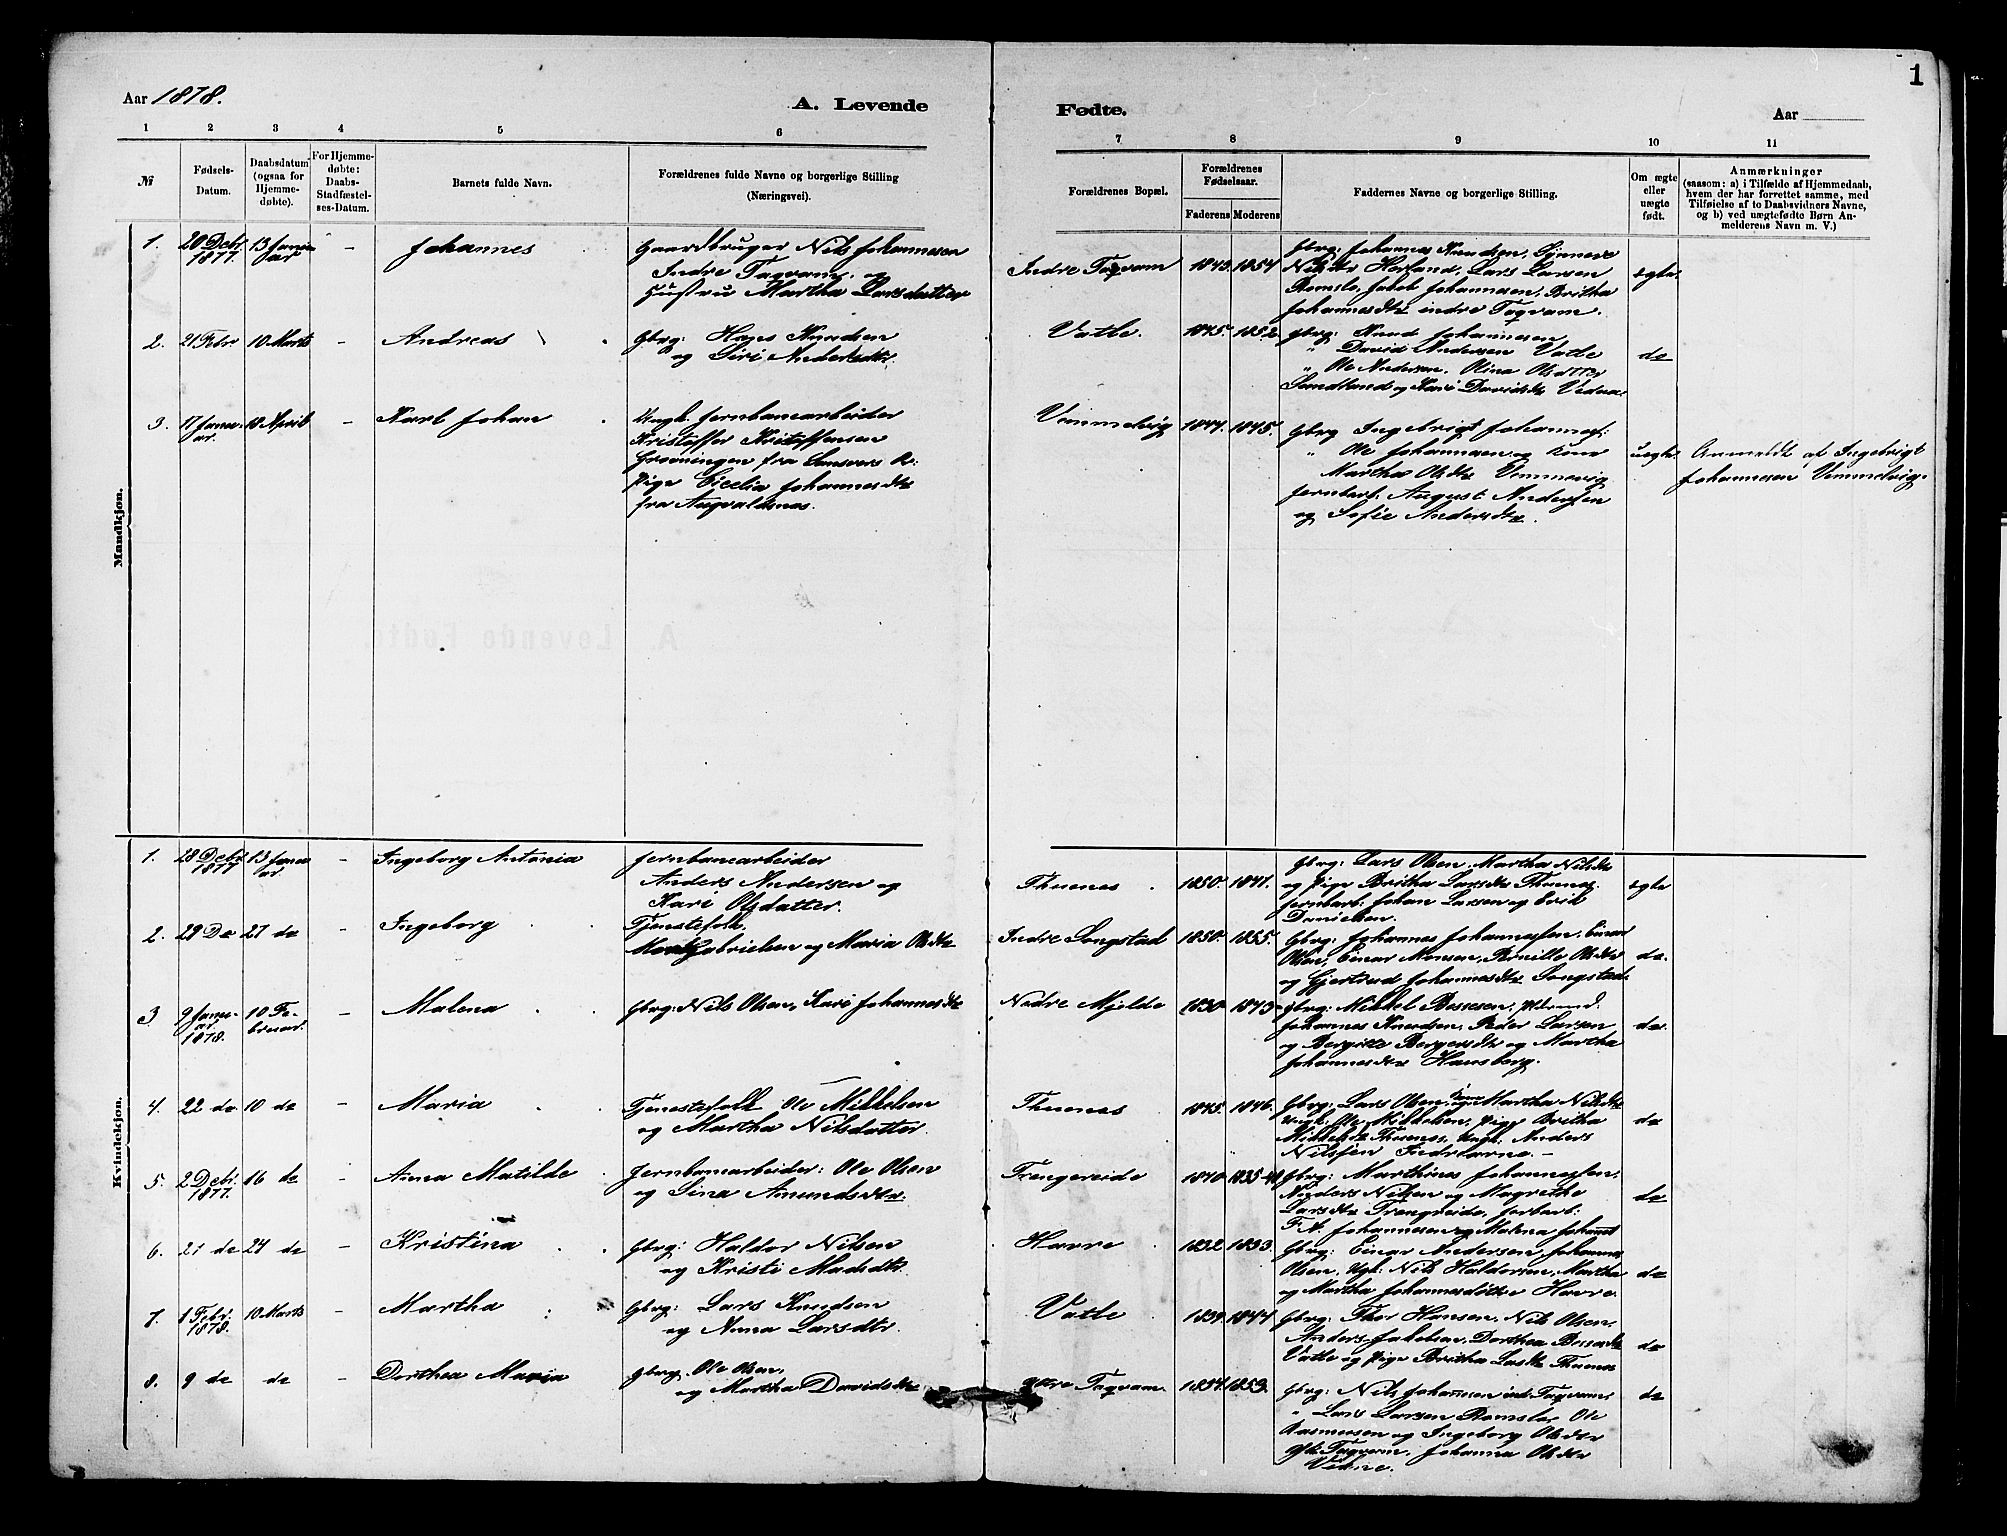 1
Aar 1878.
A. Levende
Fødte.
Aar
1 2 3 4 5 6 7 8 9 10 11
№
Fødsels-
Datum.
Daabsdatum
(ogsaa for
Hjemme-
døbte).
For Hjemme-
døbte:
Daabs-
Stadfæstel-
ses-Datum.
Barnets fulde Navn.
Forældrenes fulde Navne og borgerlige Stilling
(Næringsvei).
Forældrenes Bopæl.
Forældrenes
Fødselsaar.
Faderens Moderens
Faddernes Navne og borgerlige Stilling.
Om ægte
eller
uægte
født.
Anmærkninger
(saasom: a) i Tilfælde af Hjemmedaab,
hvem der har forrettet samme, med
Tilføielse af to Daabsvidners Navne,
og b) ved uægtefødte Børn An-
melderens Navn m. V.)
Mandkjøn.
1. 20 Decbr 1877. 13 Januar - Johannes
Gaardbruger Nils Johannesen
Indre Taqvam og
Hustru Martha Larsdatter
Indre Taqvam 1843. 1854
Gbrg: Johannes Knudsen, Synneve
Nilsdtr Horland, Lars Larsen
Romslo, Jakob Johannesen, Britha
Johannesdtr indre Taqvam.
ægte
2. 21 Febr 10 Marts - Andreas
Gbrg: Hans Knudsen
og Siri Andersdtr.
Vatle. 1845. 1852
Gbrg: Knud Johannesen,
" David Andersen Vatle
" Ole Andersen, Olina Olsdtter
Sandland og Kari Davidsdtr
do
3. 17 Januar. 10 April - Karl Johan
Ungk. Jernbanearbeider
Kristoffer Kristoffersen
Grovningen fra
Pige Cicelia Johannesdtr
fra Augvaldsnes.
Vemmelvig 1844. 1845.
Gbrg Ingebrigt Johannes:
" Ole Johannesen og Kone
Martha Olsdtr
Jernbarb. August Andersen
og Sofie Andersdtr.
uægte. Anmeldt af Ingebrigt
Johannesen Vemmelvig.
Kvindekjøn.
1. 28 Decbr 1877 13 Januar. - Ingeborg Antonia
Jernbanearbeider
Anders Andersen og
Kari Olsdatter.
Thuenes. 1850. 1847.
Gbrg: Lars Olsen, Martha Nilsdtr
og Pige Britha Larsdtr Thuenes.
Jernbarb. Johan Larsen og
Danielsen.
ægte
2. 29 De 27 do - Ingeborg
Tjenestefolk.
Gabrielsen og Maria Olsdtr
Indre Songstad 1850. 1855.
Gbrg: Johannes Johannessen, Einar
Olsen, Einar Monsen, Pernille Olsdtr
og Gjertrud Johannesdtr Songstad.
do.
3. 9 Januar. 1878. 10 Februar. - Malena
Gbrg: Nils Olsen, Kari Johannesdtr
Nedre Mjelde 1830 1843
Gbrg: Mikkel Bessesen,
Johannes Knudsen, Peder Larsen
og Bergitte Bergersdtr og Martha
Johannesdtr Hausberg.
do.
4. 22 do 10 do - Maria
Tjenestefolk Ole Mikkelsen
og Martha Nilsdatter.
Thuenes 1845. 1846.
Gbrg: Lars Olsen, og Kone Martha Nilsdtr
Ungk: Ole Mikkelsen, Pige Britha
Mikkelsdtr Thuenes, Ungk. Anders
Nilssen Indrearne. -
do
5. 2 Decbr. 1877. 16 do - Anna Matilde
Jernbanearbeider: Ole Olsen
og Sina Amundsdtr.
Trengereide 1840 1835-40
Gbrg: Marthines Johannessen.
Anders Nilsen og Magrethe
Larsdtr Trengreide, Jerbarb:
F. N. Johannesen og Malena Johannd
do
6. 21 do 24 do - Kristina
Gbrg: Haldor Nilsen
og Kristi Madsdtr.
Havre 1832 1833.
Gbrg: Einar Andersen, Johannes
Olsen, Ugk: Nils Haldorsen, Martha
og Martha Johannesdøttre Havre.
do
7. 1 Febr. 1878. 10 Marts - Martha
Gbrg: Lars Knudsen
og Anna Larsdtr.
Vatle 1839. 1844
Gbrg: Thor Hansen, Nils Olsen,
Anders Jakobsen, Dorthea
Vatle og Pige Britha Thuenes
do
8. 9 do do - Dorthea Maria
Gbrg. Ole Olsen,
og Martha Davidsdtr
Ytre Taqvam. 1854. 1853.
Gbrg: Nils Johannesen ind. Taqvam.
" Lars Larsen Romslo, Ole
Rasmussen og Ingeborg Olsdtr
Taqvam, Johanna Olsdtr
do